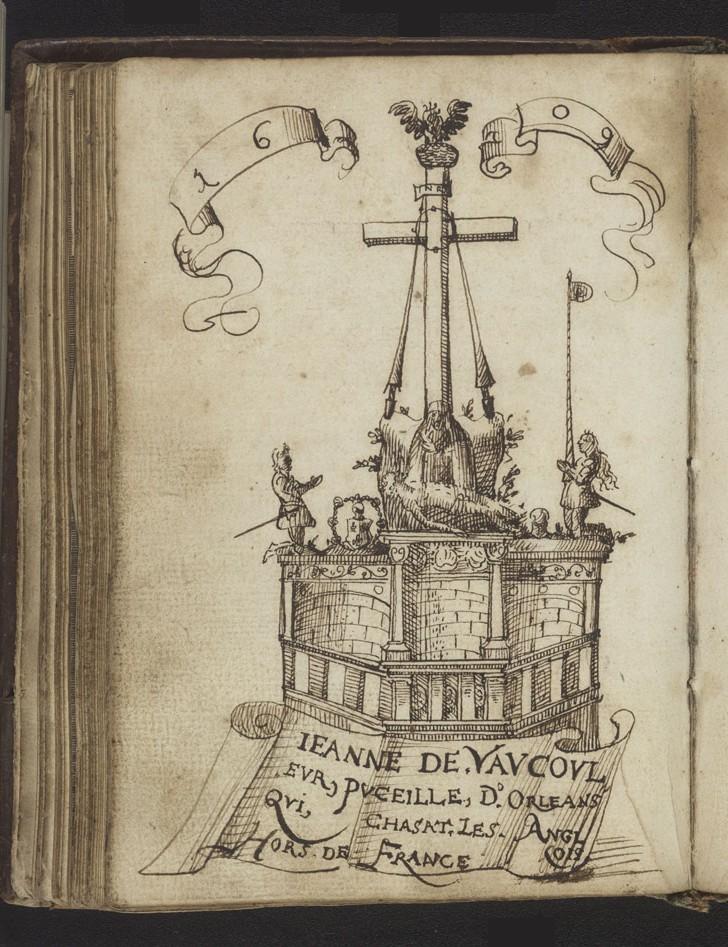 1 6 0 9
INR
IEANNE DE. VAVCOVL
EVR, PVCEILLE, D'ORLEANS
QVI, CHASAT. LES. ANGL
HORS. DE FRANCE COIS.